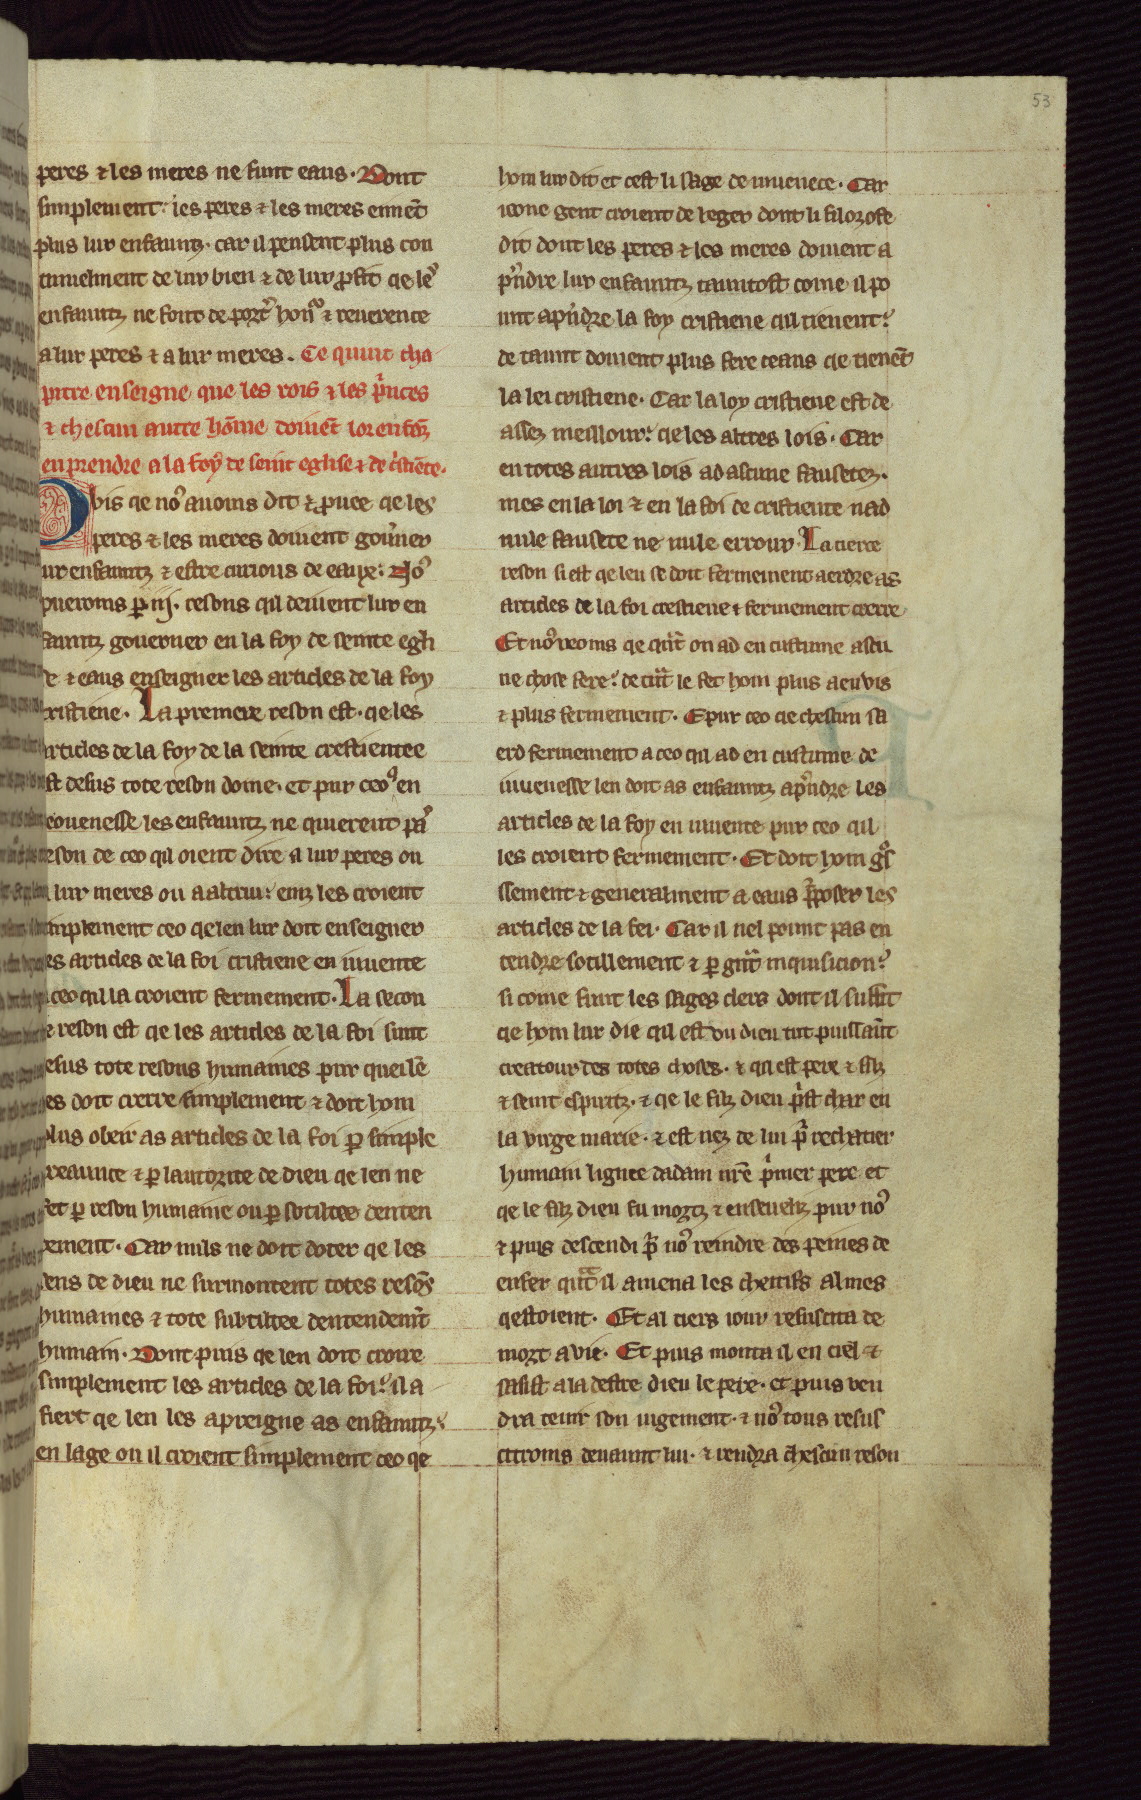 53
peres ⁊ les meres ne sunt eaus. Dont
simplement: les peres ⁊ les meres eiment̄
plus lur enfauntz. car il pensent plus con
tinuelment de lur bien ⁊ de lur ꝓfit qe leˀ
enfauntz ne font de port̾ honᵒ ⁊ reuerence
a lur peres ⁊ a lur meres. Ce quint cha
pitre enseigne que les rois ⁊ les p̾inces
⁊ chescun autre hōme doiuēt lor enfātz
enprendre a la foy de seint eglise ⁊ de c̾stiēte.
Puis qe noˀ auoms dit ⁊ ꝓuee qe les
peres ⁊ les meres doiuent gou̾ner
lur enfauntz ⁊ estre curious de eaux: Noˀ
prueroms ꝑ iij. resons qil deiuent lur en
fauntz gouerner en la foy de seinte egli
se ⁊ eaus enseigner les articles de la foy
cristiene. La premere reson est. qe les
articles de la foy de la seinte crestientee
est desus tote reson dome. et pur ceo qˀ en
iouenesse les enfauntz ne quierent paˀ
reson de ceo qil oient dire a lur peres ou
a lur meres ou a altrui: einz les croient
simplement ceo qe len lur doit enseigner
les articles de la foi cristiene en iuuente
a ceo qil la croient fermement. La secon
de reson est qe les articles de la foi sunt
desus tote resons humaines pur quei lē
les doit creire simplement ⁊ doit hom
plus obeir as articles de la foi ꝑ simple
creaunce ⁊ ꝑ lautorite de dieu qe len ne
fet ꝑ reson humaine ou ꝑ sotiltee denten
dement. Car nuls ne doit doter qe les
dens de dieu ne surmontent totes resōs
humaines ⁊ tote subtiltee dentendem̄t
humain. Dont puis qe len doit croire
simplement les articles de la foi: il a
fiert qe len les apreigne as enfauntz:
en lage ou il croient simplement ceo qe
hom lur dit et cest li sage de iuuence. Car
ioene gent croient de leger dont li filozofe
dit dont les peres ⁊ les meres doiuent a
p̾ndre lur enfauntz tauntost come il po
unt ap̾ndre la foy cristiene qil tienent:
de taunt doiuent plus fere ceaus qe tienēt
la lei cristiene. Car la loy cristiene est de
assez meillour: qe les altres lois. Car
en totes autres lois ad ascune fausetez.
mes en la loi ⁊ en la foi de cristiente nad
nule fausete ne nule errour. La tierce
reson si est qe leu se doit fermement aerdre as
articles de la foi crestiene ⁊ fermement creere
Et noˀ veoms qe qn̄t on ad en custume ascu
ne chose fere: de tn̄t le fet hom plus a enuis
⁊ plus fermement. Epur ceo qe chescun sa
erd fermement a ceo qil ad en custume de
iuuenesse len doit as enfauntz ap̾ndre les
articles de la foy en iuuente pur ceo qil
les croient fermement. Et doit hom gᵒs
sement ⁊ generalment a eaus p̾poser les
articles de la fei. Car il nel pount pas en
tendre sotillement ⁊ ꝑ gn̄t inquisicion:
si come sunt les sages clers dont il suffit
qe hom lur die qil est vn dieu tut puissaūt
creatour des totes choses. ⁊ qil est pere ⁊ filz
⁊ seint espiritz. ⁊ qe le filz dieu p̾st char en
la virge marie. ⁊ est nez de lui p̾ rechatier
humain lignee dadam nr̄e p̾mer pere et
qe le filz dieu fu mortz ⁊ enseueliz pur noˀ
⁊ puis descendi p̾ noˀ reindre des peines de
enfer qn̄t il amena les cheitifs almes
qestoient. Et al tiers iour resuscita de
mort a vie. Et puis monta il en ciel ⁊
sasist a la destre dieu le pere. et puis ven
dra tenir son iugement. ⁊ noˀ tous resus
citroms deuaunt lui. ⁊ rendra chescun reson